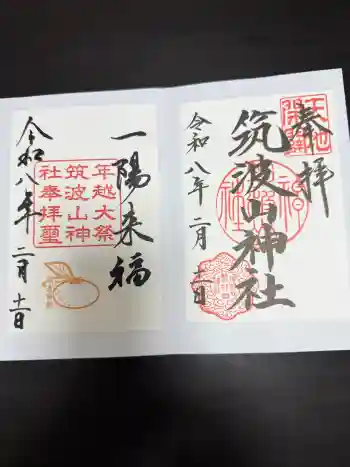 奉拝
天地
開闢
筑波山神社
令和八年二月十一日
一陽来福
年越大祭
筑波山神
社奉拝璽
令和八年二月十一日